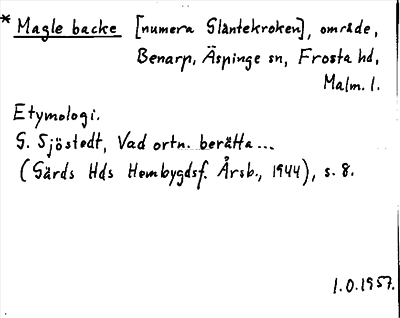 * Magle backe [numera Slåntekroken], område,
Benarp, Äspinge sn, Frosta hd,
Malm. l.
Etymologi.
G. Sjöstedt, Vad ortn. berätta...
(Gärds Hds Hembygdsf. Årsb., 1944), s. 8.
1.0.1957.